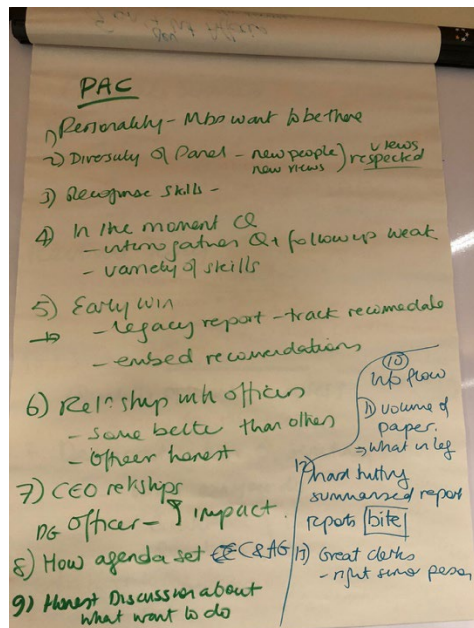 PAC
1) Personality - Mbs want to be there
2) Diversity of Panel - new people) views
new views) respected
3) Recognise skills -
4) In the moment CQ
- interrogation Q+ follow up weak
- variety of skills
5) Early win
→ - legacy report - track
- embed recomendations
6) Rel'nship with officers
- some better than others
- Officer honest
7) CEO
DG Officer - impact.
8) How agenda set C&AG
9) Honest Discussion about
what want to do
10
info flow
11) volume of
paper.
→ what in leg
12) hard hitting
summarised report
reports bite
13) Great clerks
- right person